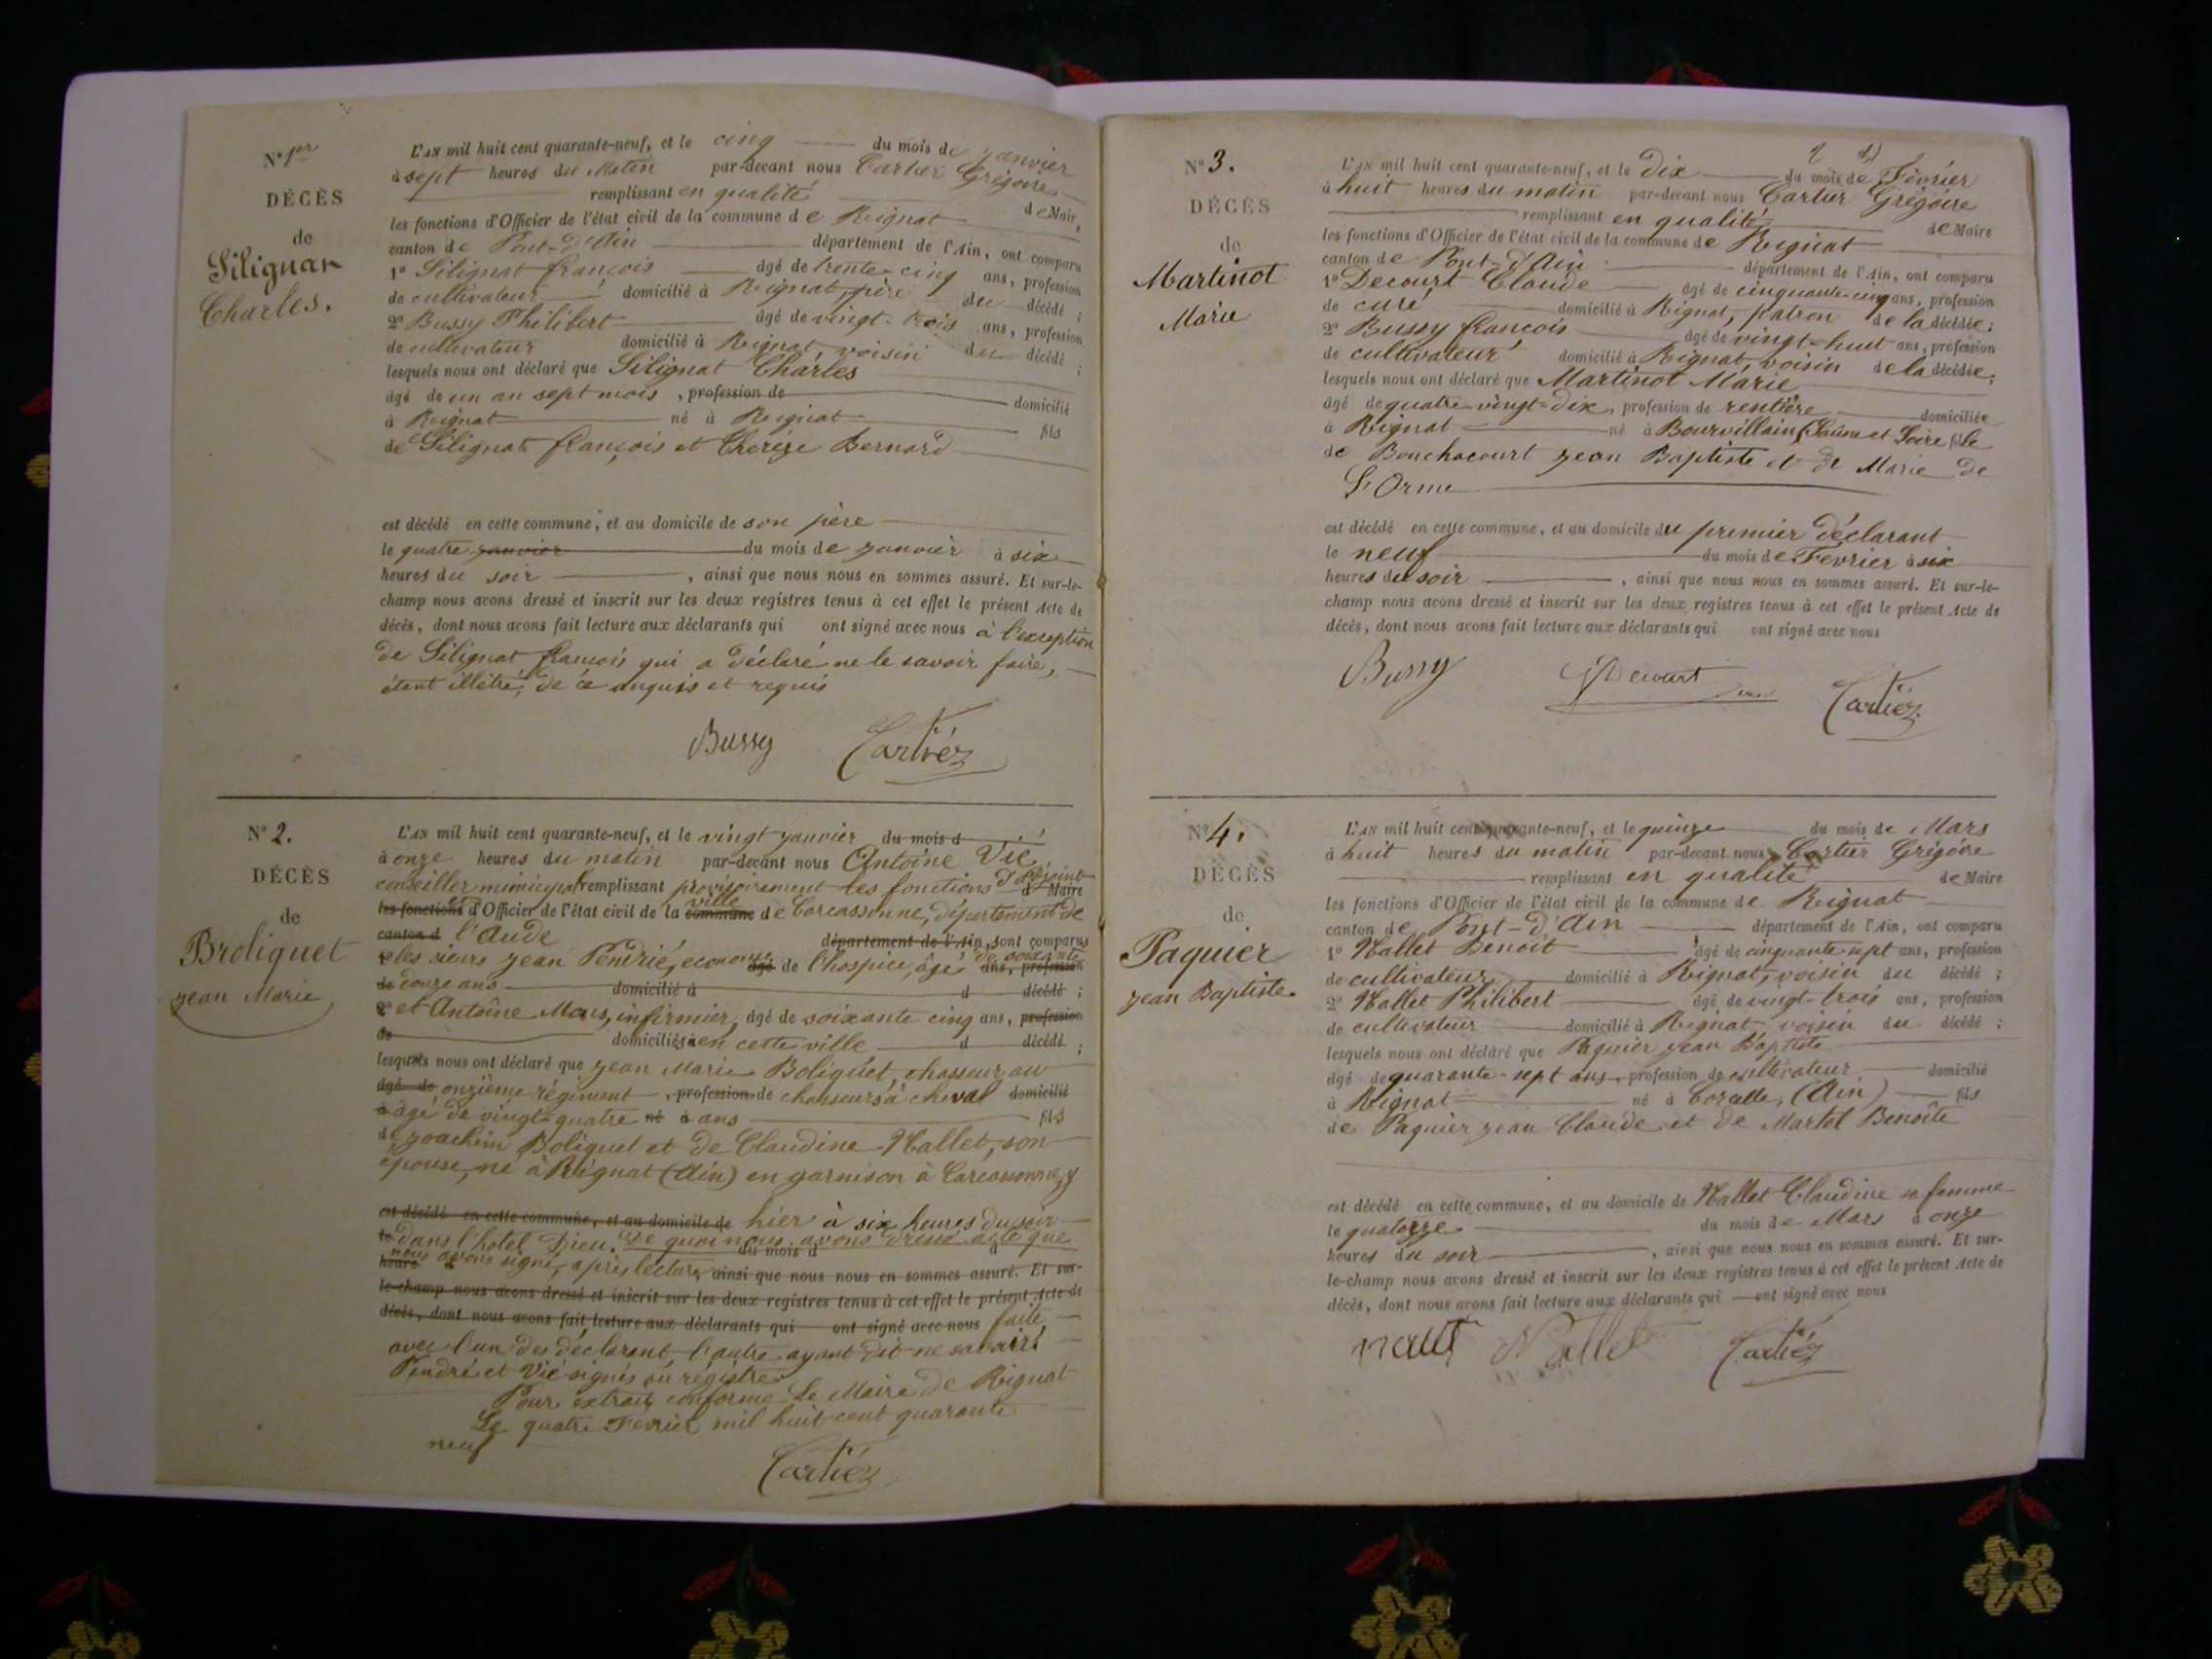 N° 1er
DÉCÈS
de
Silignat
Charles.
L'AN mil huit cent quarante-neuf, et le cinq du mois de janvier
à sept heures du Matin par-devant nous Cartier Grégoire
remplissant en qualité de Maire,
les fonctions d'Officier de l'état civil de la commune de Rignat
canton de Pont-d'Ain département de l'Ain, ont comparu
1° Silignat françois âgé de trente-cinq ans, profession
de cultivateur domicilié à Rignat, père du décédé ;
2° Bussy Philibert âgé de vingt-trois ans, profession
de cultivateur domicilié à Rignat voisin du décédé ;
lesquels nous ont déclaré que Silignat Charles
âgé de un an sept mois, profession de domicilié
à Rignat né à Rignat fils
de Silignat françois et Thereze Bernard
est décédé en cette commune, et au domicile de son père
le quatre janvier du mois de janvier à six
heures du soir, ainsi que nous nous en sommes assuré. Et sur-le-
champ nous avons dressé et inscrit sur les deux registres tenus à cet effet le présent Acte de
décès, dont nous avons fait lecture aux déclarants qui ont signé avec nous à l'exception
de Silignat françois qui a déclaré ne le savoir faire,
étant illétré, de ce enquis et requis
Bussy Cartiér
N° 2.
DÉCÈS
de
Broliquet
jean Marie
L'AN mil huit cent quarante-neuf, et le vingt janvier du mois d
à onze heures du matin par-devant nous Antoine Vié,
conseiller municipal remplissant provisoirement les fonctions d'adjoint d Maire
les fonctions d'Officier de l'état civil de la commune ville de Carcassonne, département de
canton d l'Aude département de l'Ain, sont comparus
1° les sieurs jean Pendrié, econome âgé de l'hospice, âgé de soixante ans, profession
de donze ans domicilié à d décédé ;
2° et Antoine Mas, infirmier, âgé de soixante cinq ans, profession
de domiciliés à en cette ville d décédé ;
lesquels nous ont déclaré que jean Marie Boliquet, chasseur au
âgé de onzième régiment, profession de chasseurs à cheval domicilié
à âgé de vingt-quatre né à ans fils
de joachim Boliquet et de Claudine Nallet, son
épouse, né à Rignat (Ain) en garnison à Carcassonne, y
est décédé en cette commune, et au domicile de hier à six heures du soir
le dans l'hotel Dieu. De quoi nous avons dressé acte que du mois d
heure nous avons signé, après lecture, ainsi que nous nous en sommes assuré. Et sur-
le-champ nous avons dressé et inscrit sur les deux registres tenus à cet effet le présent Acte de
décès, dont nous avons fait lecture aux déclarants qui ont signé avec nous faite
avec l'un des déclarant, l'autre ayant dit ne savoir
Pendrié et Vié signés au régistre
Pour extrait conforme Le Maire de Rignat
Le quatre Fevrier mil huit cent quarante
neuf
Cartiér
N° 3.
DÉCÈS
de
Martinot
Marie
L'AN mil huit cent quarante-neuf, et le Dix du mois de Février
à huit heures du matin par-devant nous Cartier Grégoire
remplissant en qualité de Maire
les fonctions d'Officier de l'état civil de la commune de Rignat
canton de Pont-d'Ain département de l'Ain, ont comparu
1° Decourt Claude âgé de cinquante-cinq ans, profession
de curé domicilié à Rignat, patron de la décédée ;
2° Bussy françois âgé de vingt-huit ans, profession
de cultivateur domicilié à Rignat, voisin de la décédée ;
lesquels nous ont déclaré que Martinot Marie
âgé de quatre-vingt-dix, profession de rentière domiciliée
à Rignat né à Bourvillain (Saône et Loire fille
de Bouchacourt jean Baptiste et de Marie de
L'Orme
est décédé en cette commune, et au domicile du premier déclarant
le neuf du mois de Fevrier à six
heures du soir, ainsi que nous nous en sommes assuré. Et sur-le-
champ nous avons dressé et inscrit sur les deux registres tenus à cet effet le présent Acte de
décès, dont nous avons fait lecture aux déclarants qui ont signé avec nous
Bussy Decourt Cartiér
N° 4.
DÉCÈS
de
Paquier
jean Baptiste
L'AN mil huit cent quarante-neuf, et le quinze du mois de Mars
à huit heures du matin par-devant nous Cartier Grégoire
remplissant en qualité de Maire
les fonctions d'Officier de l'état civil de la commune de Rignat
canton de Pont-d'Ain département de l'Ain, ont comparu
1° Nallet Benoît âgé de cinquante-sept ans, profession
de cultivateur domicilié à Rignat, voisin du décédé ;
2° Nallet Philibert âgé de vingt-trois ans, profession
de cultivateur domicilié à Rignat, voisin du décédé ;
lesquels nous ont déclaré que Paquier jean Baptiste
âgé de quarante-sept ans, profession de cultivateur domicilié
à Rignat né à Corcelle, (Ain) fils
de Paquier jean Claude et de Martel Benoîte
est décédé en cette commune, et au domicile de Nallet Claudine sa femme
le quatorze du mois de Mars à onze
heures du soir, ainsi que nous nous en sommes assuré. Et sur-
le-champ nous avons dressé et inscrit sur les deux registres tenus à cet effet le présent Acte de
décès, dont nous avons fait lecture aux déclarants qui ont signé avec nous
Nallet Cartiér